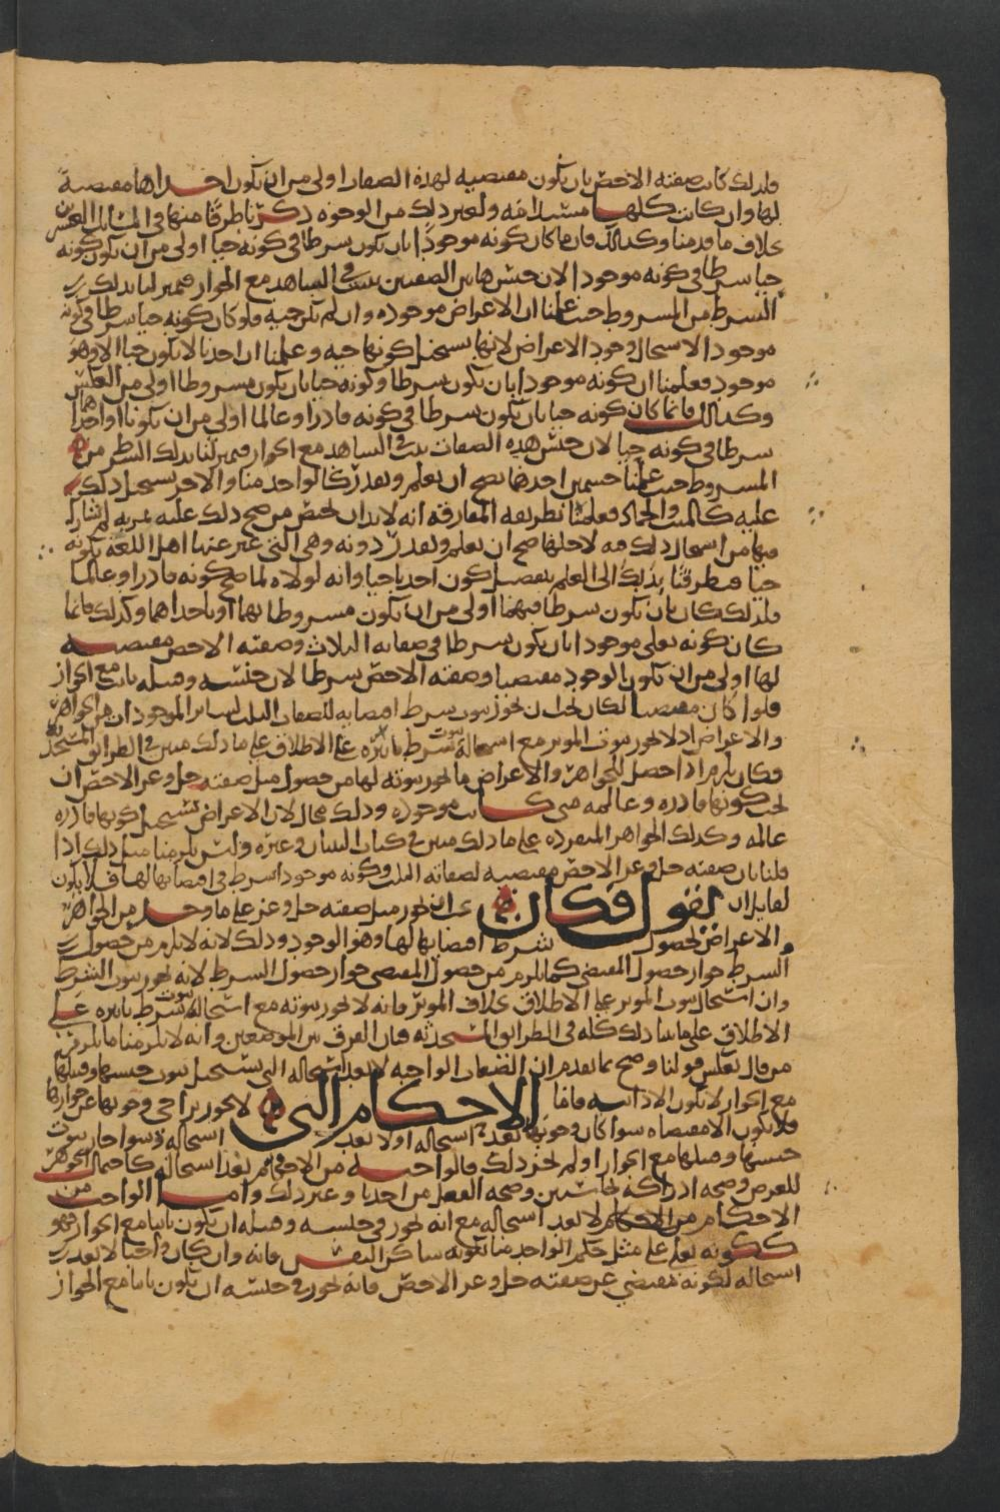 فلذلك كانت صفته الاخص بان يكون مقتضيه لهذه الصفات اولى من ان يكون احداها مقتضية
لها وان كانت كلها ولغير ذلك من الوجوه ذكرنا طرفا منها في المسايل
بخلاف ما قدمنا وكذلك فان ما كان كونه موجودا بان يكون شرطا في كونه حيا اولى من ان يكون كونه
حيا شرطا في كونه موجودا لان جنس هاتين الصفتين يثبت في الشاهد مع الجواز فتميز لنا بذلك
الشرط من المشروط حيث علمنا ان الاعراض موجوده وان لم تكن حيه فلو كان كونه حيا شرطا في كونه
موجودا لاستحال وجود الاعراض لانها يستحيل كونها حيه وعلمنا ان احدنا لا يكون حيا الا وهو
موجود فعلمنا ان كونه موجودا بان يكون شرطا وكونه حيا بان يكون مشروطا اولى من العكس
وكذلك فانما كان كونه حيا بان يكون شرطا في كونه قادرا وعالما اولى من ان يكونا او احداهما
شرطا في كونه حيا لان جنس هذه الصفات يثبت في الشاهد مع الجواز فتميز لنا بذلك الشرط من
المشروط حيث علمنا جسمين احدهما يصح ان يعلم ويقدر كالواحد منا والاخر يستحيل ذلك
عليه كالميت والجماد فعلمنا بطريقه المفارقه انه لا بد ان يختص من صح ذلك عليه بمزيه لم يشاركه
فيها من استحال ذلك فيه لاجلها صح ان يعلم ويقدر دونه وهي التي عبر عنها اهل اللغة بكونه
حيا فتطرقنا بذلك الى العلم بتفصيل كون احدنا حيا وانه لولاه لما صح كونه قادرا وعالما
فلذلك كان بان يكون شرطا فيهما اولى من ان يكون مشروطا بهما او باحداهما وكذلك فانما
كان كونه تعلى موجودا بان يكون شرطا في صفاته الثلاث وصفته الاخص مقتضيه
لها اولى من ان يكون الوجود مقتضيا وصفته الاخص شرطا لان جنسه وقبيله ثابت مع الجواز
فلو كان مقتضيا لكان يجب ان يجوز ثبوت شرط اقتضايه للصفات الثلث لساير الموجودات من الجواهر
والاعراض اذ لا يجوز ثبوت الموثر مع استحالة ثبوت شرط تاثيره على الاطلاق على ما ذلك مبين في الطرايق
فكان يلزم اذا حصل للجواهر والاعراض ما يجوز ثبوته لها من حصول مثل صفته جل وعز الاخص ان
يجب كونها قادره وعالمه متى كانت موجوده وذلك محال لان الاعراض يستحيل كونها قادره
عالمه وكذلك الجواهر المنفرده على ما ذلك مبين في كتاب البيان وغيره وليس يلزمنا مثل ذلك اذا
قلنا بان صفته جل وعز الاخص مقتضيه لصفاته الثلث وكونه موجودا شرط في اقتضايها لها فلا يكون
لقايل ان يقول فكان يجب ان يجوز مثل صفته جل وعز على ما وجد من الجواهر
والاعراض لحصول شرط اقتضايها لها وهو الوجود وذلك لانه لا يلزم من حصول
الشرط جواز حصول المقتضي كما يلزم من حصول المقتضي جواز حصول الشرط لانه يجوز ثبوت الشرط
وان استحال ثبوت الموثر على الاطلاق بخلاف الموثر فانه لا يجوز ثبوته مع استحالة ثبوت شرط تاثيره على
الاطلاق على ما بينا ذلك كله في الطرايق المستحدثه فبان الفرق بين الموضعين وانه لا يلزمنا ما يلزم
من قال بعكس قولنا وصح بما تقدم ان الصفات الواجبه لا بعد استحاله التي يستحيل ثبوت جنسها وقبيلها
مع الجواز لا تكون الا ذاتيه فاما الاحكام التي لا يجوز تراخي وجوبها عن جوازها
فلا تكون الا مقتضاه سوا كان وجوبها بعد استحاله او لا بعد استحاله وسوا جاز ثبوت
جنسها وقبيلها مع الجواز او لم يجز ذلك فالواجبه من الاحكام بعد استحاله كاحتمال الجوهر
للعرض وصحه ادراكه بحاستين وصحه الفعل من احدنا وغير ذلك واما الواجب من
الاحكام من الاحكام لا بعد استحاله مع انه يجوز في جنسه وقبيله ان يكون ثابتا مع الجواز فهو
ككونه تعلى على مثل حكم الواحد منا بكونه ساكن النفس فانه وان كان واجبا لا بعد
استحاله لكونه مقتضى عن صفته جل وعز الاخص فانه يجوز في جنسه ان يكون ثابتا مع الجواز